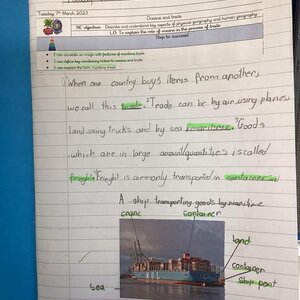 Tuesday 7th March 2023
Oceans and trade
NC objective: Describe and understand key aspects of physical geography and human geography.
L.O: To explain the role of oceans in the process of trade
Steps to success!
I can annotate an image with features of maritime trade.
I can define key vocabulary linked to oceans and trade.
I can explain the term maritime trade
When one country buys items from another,
we call this trade. Trade can be by air using planes,
land using trucks and by sea (maritime). Goods
which are in large amount/quantities is called
freight. Freight is commonly transported in containers
A ship transporting goods by maritime
crane container
land
container
ship port
sea